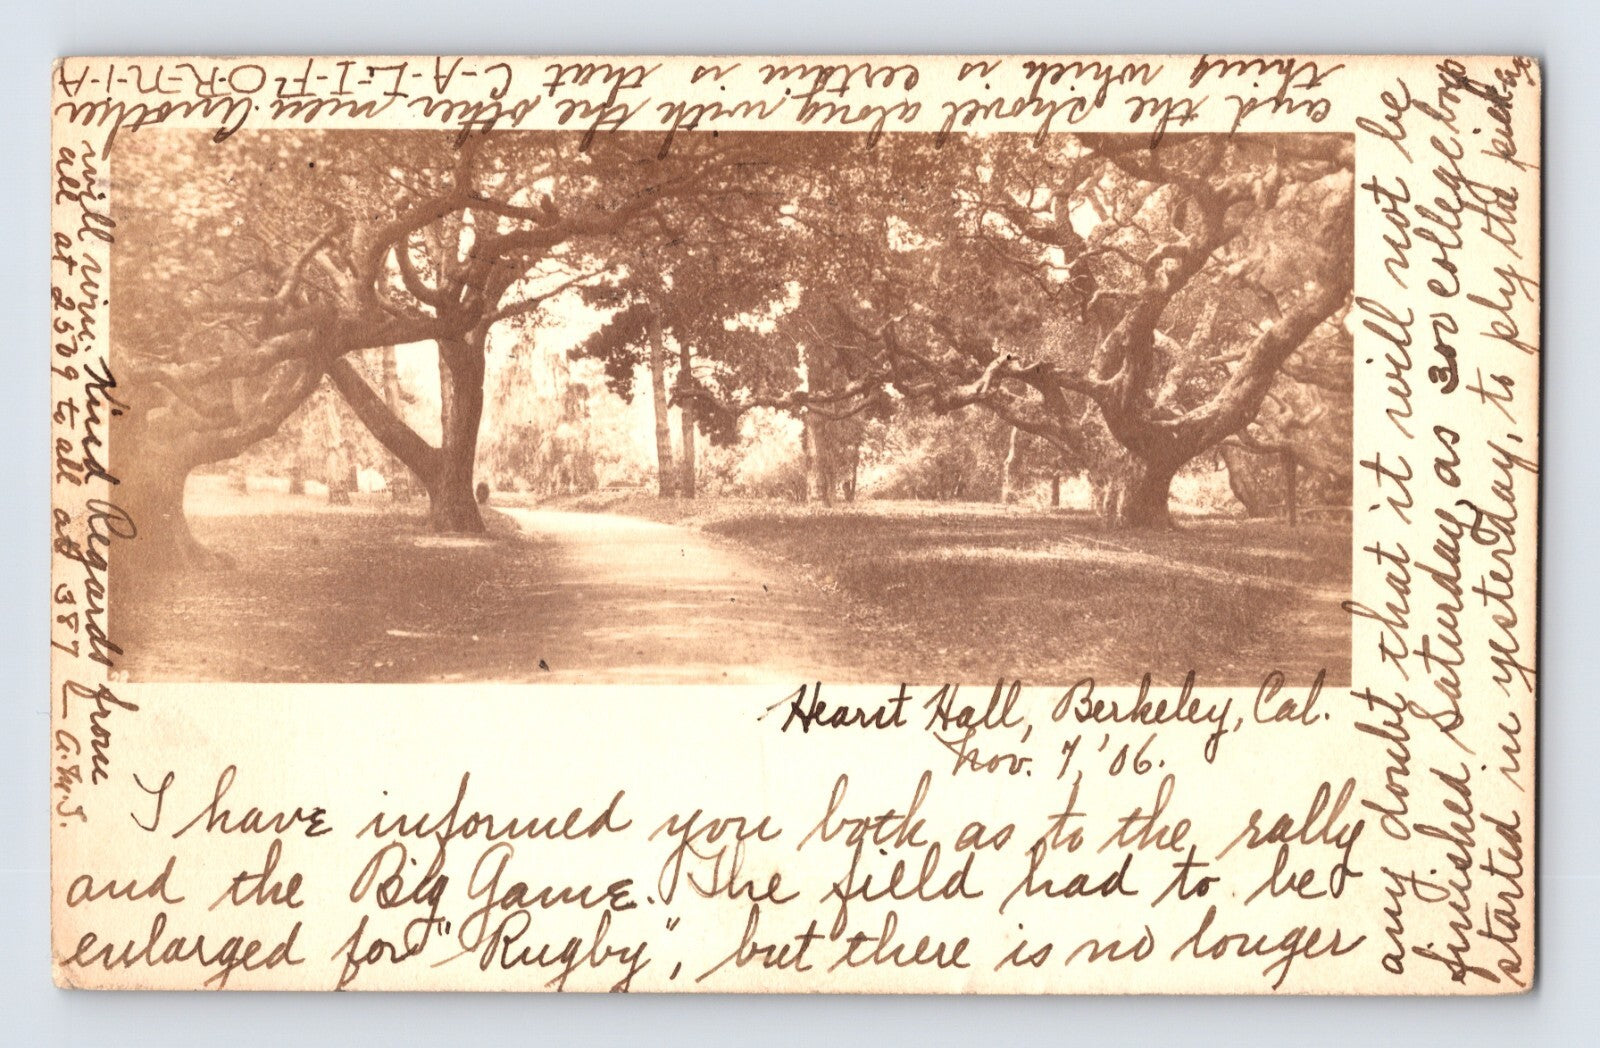 Hearst Hall, Berkeley, Cal.
Nov. 7, '06.
I have informed you both as to the rally
and the Big Game. The field had to be
enlarged for "Rugby", but there is no longer
any doubt that it will not be
finished Saturday as 300 college boys
started in yesterday, to ply the pick-axe
and the shovel along with the other men. Another
thing which is certain is that C-A-L-I-F-O-R-N-I-A
will win. Kind Regards from
all at 2509 to all at 387 —